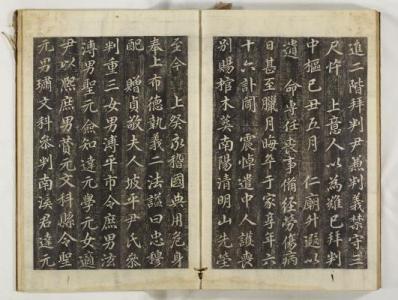 進二階拜判尹兼判義禁守三
尺忤 上意人以為難已拜判
中樞己丑五月 仁廟升遐以
遺 命專任喪事備經勞傷病
日甚至臘月晦卒于家享年六
十六訃聞 震悼遣中人護喪
別賜棺木葬南陽清明山先塋
至今 上癸亥稽國典用危身
奉上布德執義二法諡曰忠穆
配 贈貞敬夫人坡平尹氏參
判重三女男溥平市令庶男法
溥男聖元僉知達元學元女適
尹以熙庶男贊元文科縣令聖
元男 文科參判南溪君達元